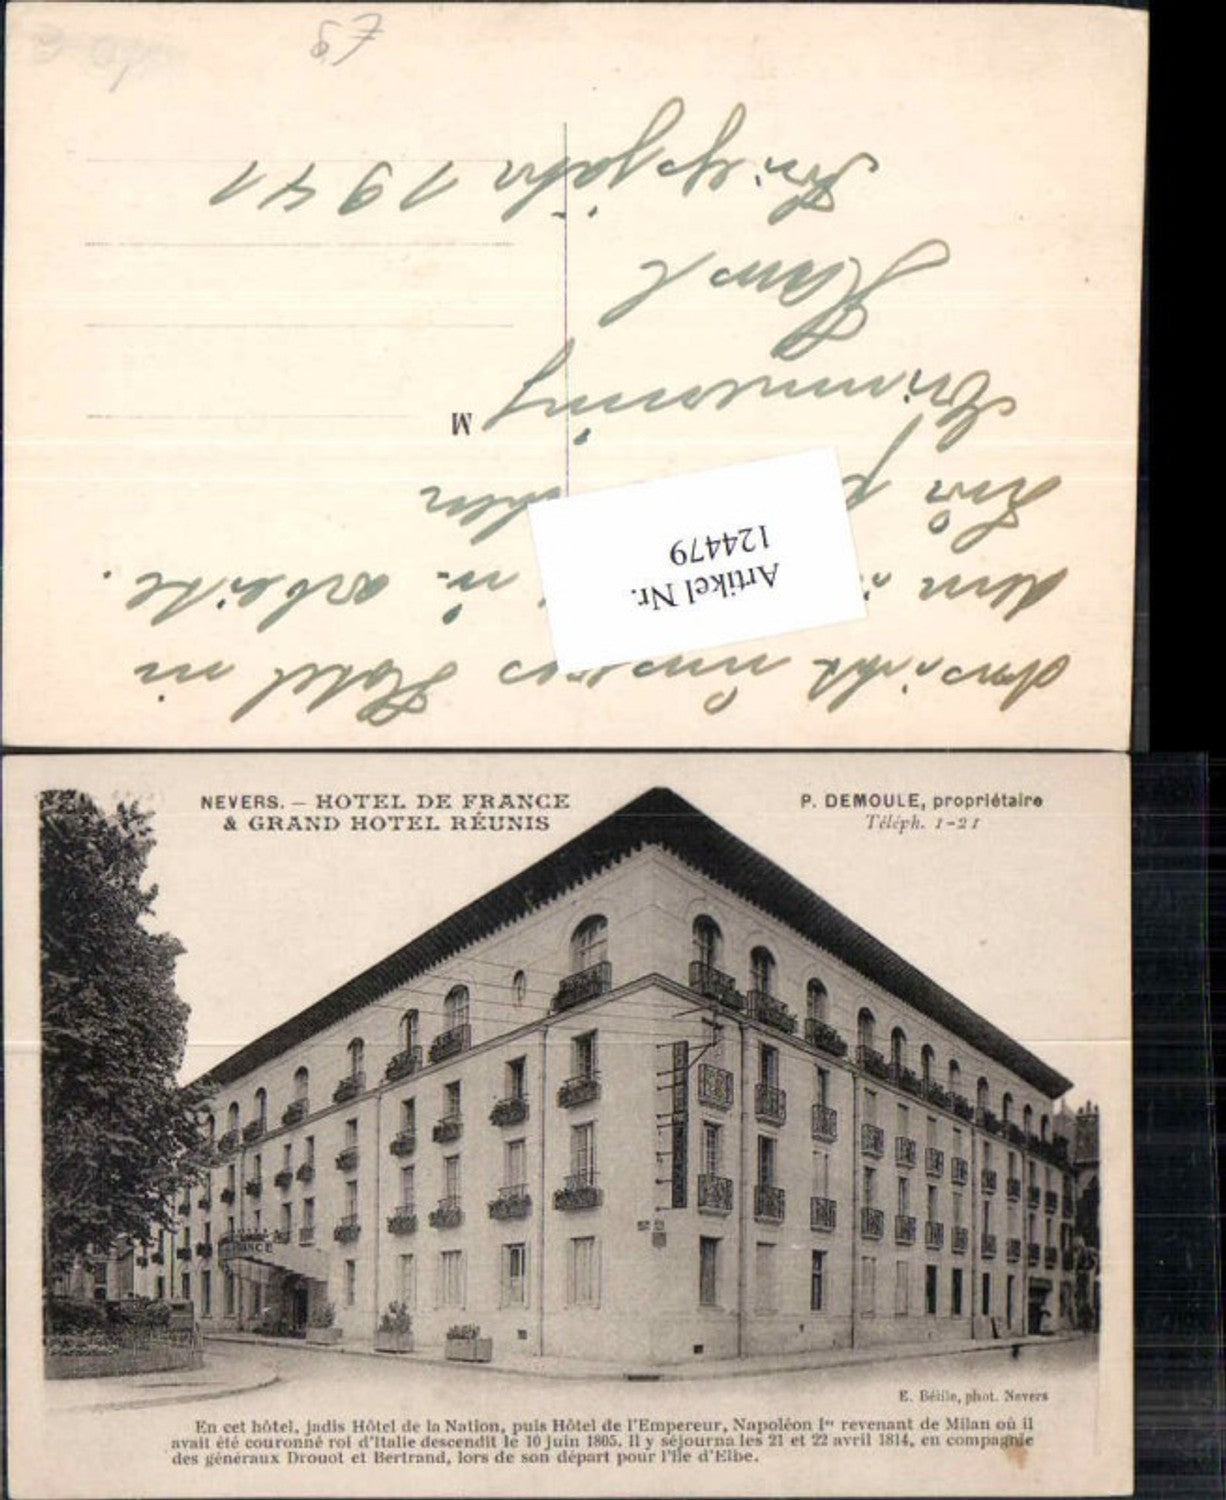 Ansicht unseres Hotel in
dem
Zur
Erinnerung
Kriegsjahr 1941
M
Artikel Nr.
124479
NEVERS. – HOTEL DE FRANCE
& GRAND HOTEL RÉUNIS
P. DEMOULE, propriétaire
Téléph. 1-21
FRANCE
E. Béille, phot. Nevers
En cet hôtel, jadis Hôtel de la Nation, puis Hôtel de l'Empereur, Napoléon Iᵉʳ revenant de Milan où il
avait été couronné roi d'Italie descendit le 10 juin 1805. Il y séjourna les 21 et 22 avril 1814, en compagnie
des généraux Drouot et Bertrand, lors de son départ pour l'île d'Elbe.